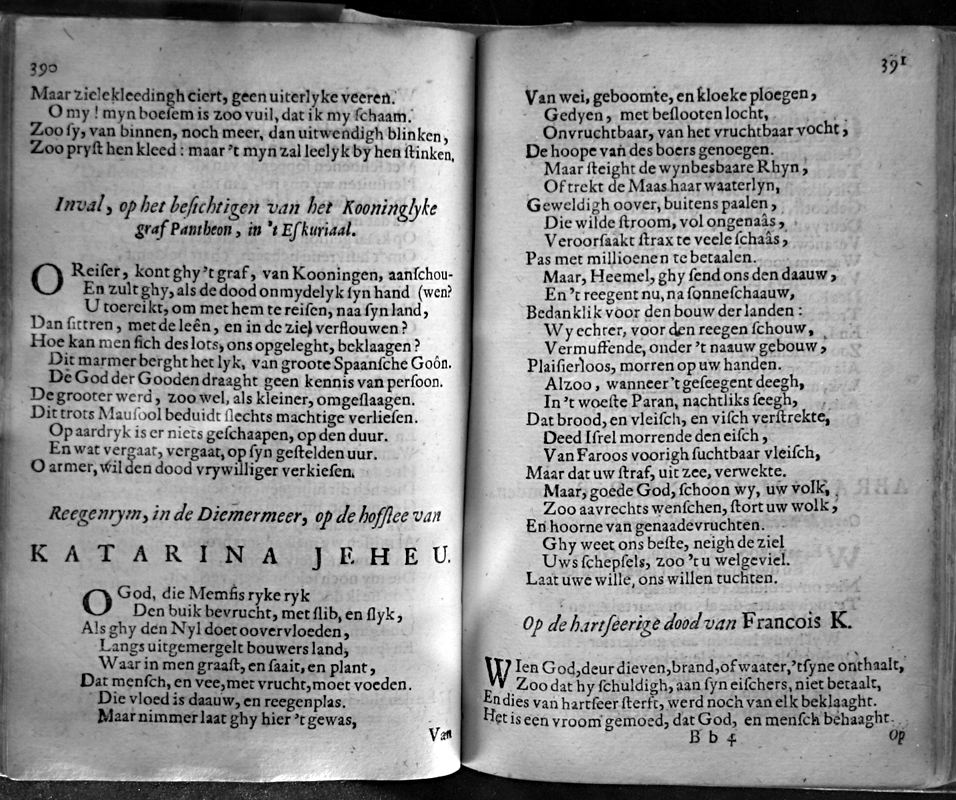 390
Maar zielekleedingh ciert, geen uiterlyke veeren.
O my ! myn boeſem is zoo vuil, dat ik my ſchaam.
Zoo ſy, van binnen, noch meer, dan uitwendigh blinken,
Zoo pryſt hen kleed : maar 't myn zal leelyk by hen ſtinken.
Inval, op het beſichtigen van het Kooninglyke
graf Pantheon, in 't Eſkuriaal.
O Reiſer, kont ghy 't graf, van Kooningen, aanſchou-
En zult ghy, als de dood onmydelyk ſyn hand (wen?
U toereikt, om met hem te reiſen, naa ſyn land,
Dan ſittren, met de leên, en in de ziel verflouwen ?
Hoe kan men ſich des lots, ons opgeleght, beklaagen ?
Dit marmer berght het lyk, van groote Spaanſche Goôn.
De God der Gooden draaght geen kennis van perſoon.
De grooter werd, zoo wel, als kleiner, omgeſlaagen.
Dit trots Mauſool beduidt ſlechts machtige verlieſen.
Op aardryk is er niets geſchaapen, op den duur.
En wat vergaat, vergaat, op ſyn geſtelden uur.
O armer, wil den dood vrywilliger verkieſen.
Reegenrym, in de Diemermeer, op de hofſtee van
KATARINA JEHEU.
O God, die Memfis ryke ryk
Den buik bevrucht, met ſlib, en ſlyk,
Als ghy den Nyl doet oovervloeden,
Langs uitgemergelt bouwers land,
Waar in men graaft, en ſaait, en plant,
Dat menſch, en vee, met vrucht, moet voeden.
Die vloed is daauw, en reegenplas.
Maar nimmer laat ghy hier 't gewas,
Van
391
Van wei, geboomte, en kloeke ploegen,
Gedyen, met beſlooten locht,
Onvruchtbaar, van het vruchtbaar vocht,
De hoope van des boers genoegen.
Maar ſteight de wynbesbaare Rhyn,
Of trekt de Maas haar waaterlyn,
Geweldigh oover, buitens paalen,
Die wilde ſtroom, vol ongenaâs,
Veroorſaakt ſtrax te veele ſchaâs,
Pas met millioenen te betaalen.
Maar, Heemel, ghy ſend ons den daauw,
En 't reegent nu, na ſonneſchaauw,
Bedanklik voor den bouw der landen :
Wy echter, voor den reegen ſchouw,
Vermuffende, onder 't naauw gebouw,
Plaiſierloos, morren op uw handen.
Alzoo, wanneer 't geſeegent deegh,
In 't woeſte Paran, nachtliks ſeegh,
Dat brood, en vleiſch, en viſch verſtrekte,
Deed Iſrel morrende den eiſch,
Van Faroos voorigh ſuchtbaar vleiſch,
Maar dat uw ſtraf, uit zee, verwekte.
Maar, goede God, ſchoon wy, uw volk,
Zoo aavrechts wenſchen, ſtort uw wolk,
En hoorne van genaadevruchten.
Ghy weet ons beſte, neigh de ziel
Uws ſchepſels, zoo 't u welgeviel.
Laat uwe wille, ons willen tuchten.
Op de hartſeerige dood van Francois K.
WIen God, deur dieven, brand, of waater, 'tſyne onthaalt,
Zoo dat hy ſchuldigh, aan ſyn eiſchers, niet betaalt,
En dies van hartſeer ſterft, werd noch van elk beklaaght.
Het is een vroom gemoed, dat God, en menſch behaaght.
B b 4
Op